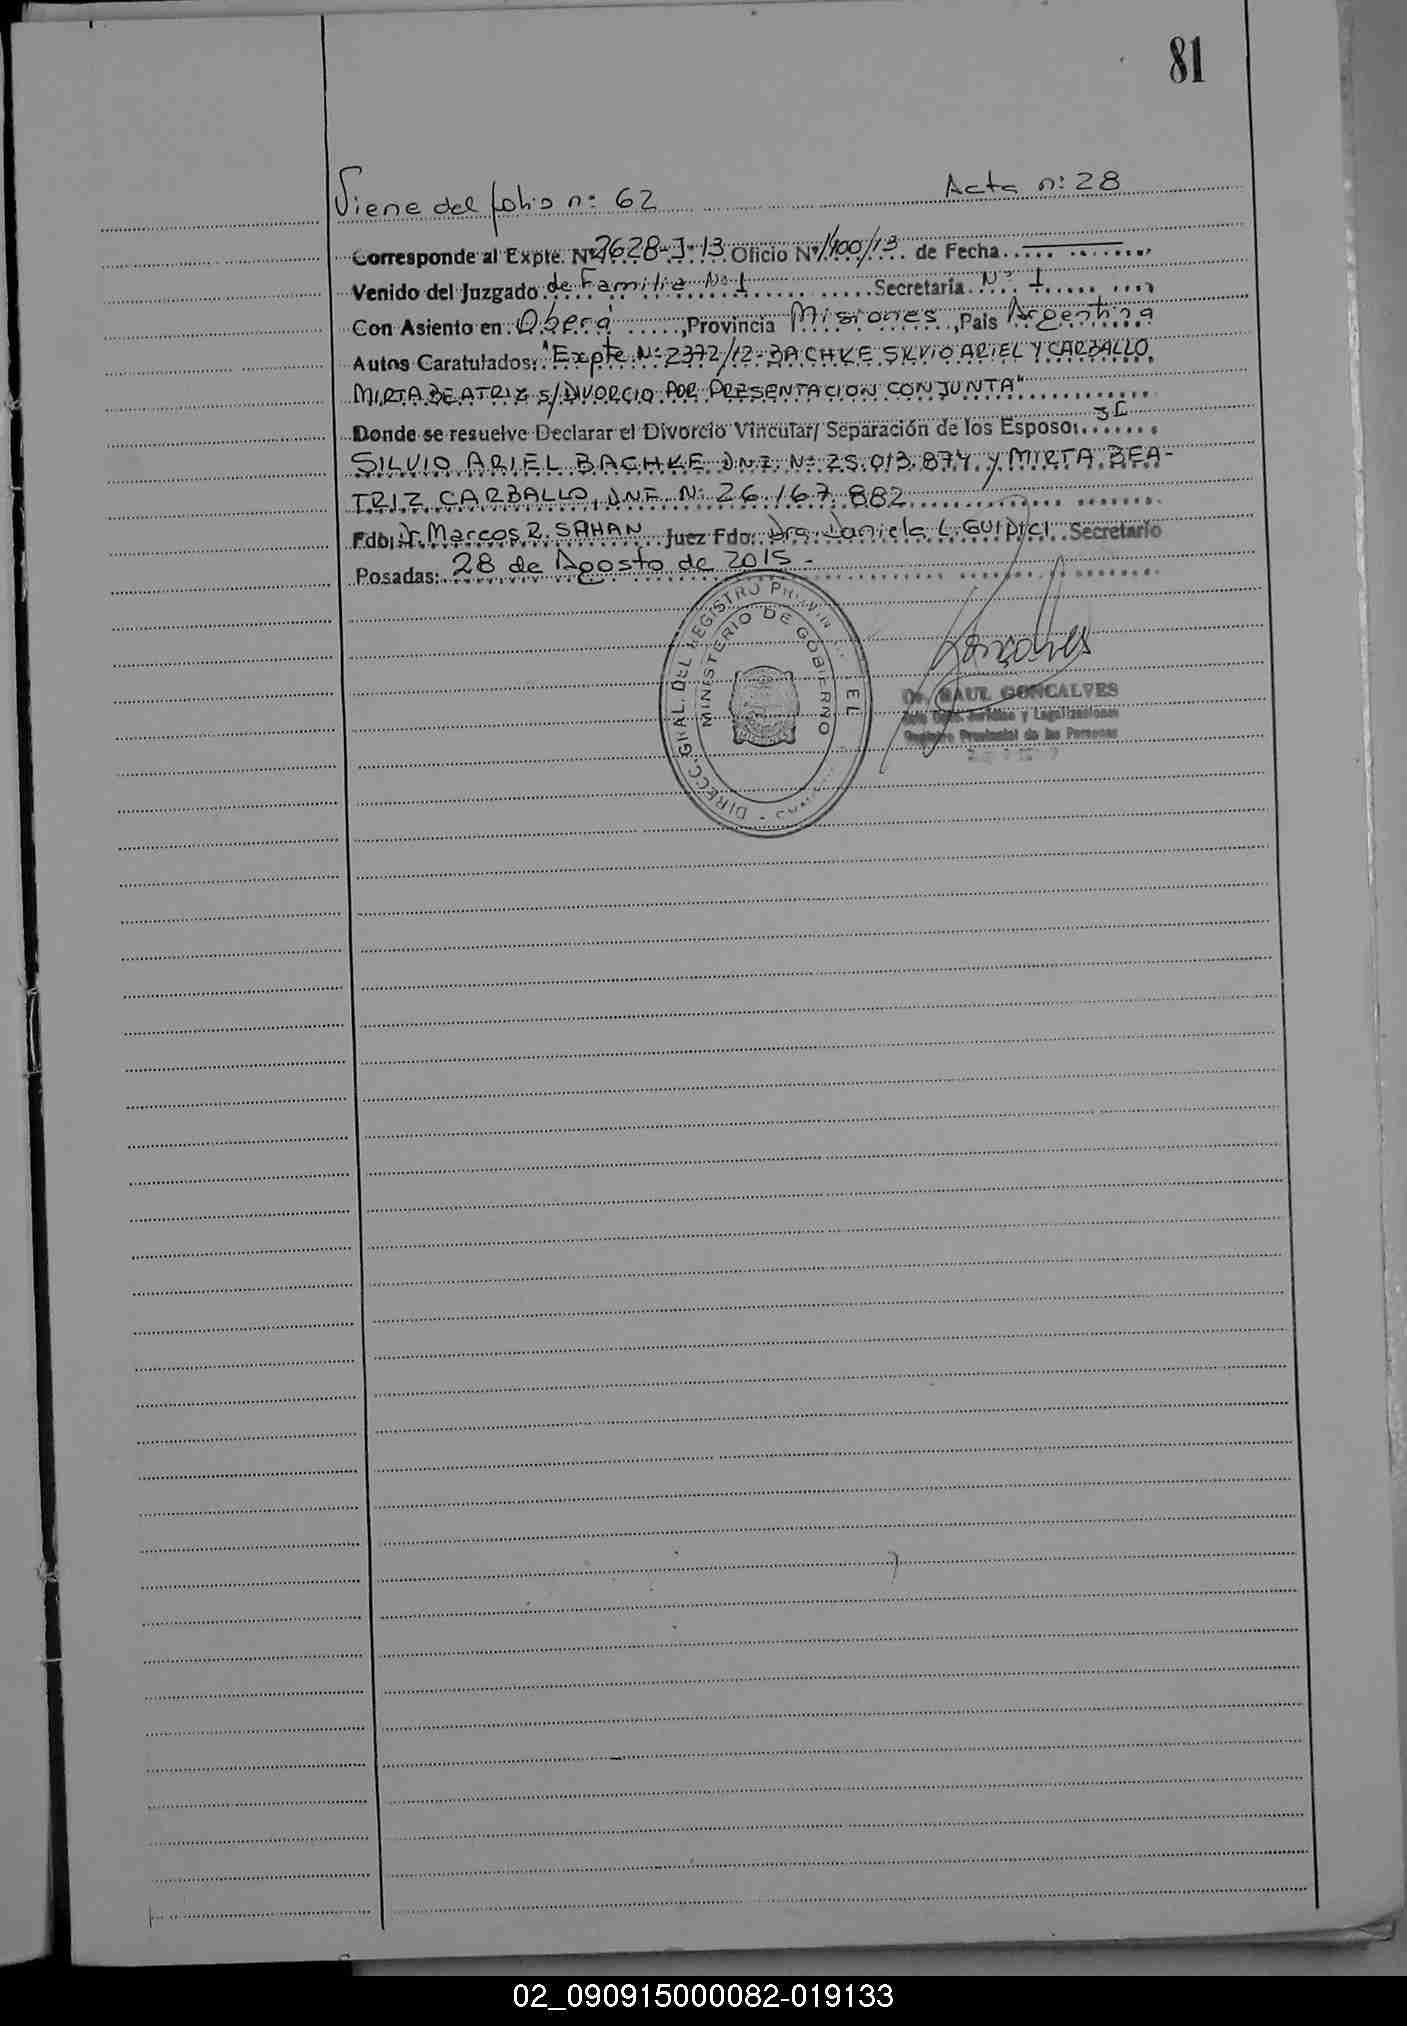 81
Viene del folio n: 62 Acta n: 28
Corresponde al Expte. Nº 2628-J-13 Oficio Nº 1400/13 de Fecha
Venido del Juzgado de Familia Nº 1 Secretaria Nº 1
Con Asiento en Oberá, Provincia Misiones, Pais Argentina
Autos Caratulados: "Expte. Nº 2372/12- BACHKE SILVIO ARIEL Y CARBALLO
MIRTA BEATRIZ S/DIVORCIO POR PRESENTACION CONJUNTA"
Donde se resuelve Declarar el Divorcio Vincular/ Separación de los Esposos
SILVIO ARIEL BACHKE D.N.I. Nº 25.013.874 y MIRTA BEA-
TRIZ CARBALLO, D.N.I. Nº 26.167.882
Fdo: Dr. Marcos R. SAHAN Juez Fdo: Dra. Daniela L. GUIDICI Secretario
Posadas: 28 de Agosto de 2015 -
DIRECC. GRAL. DEL REGISTRO
MINISTERIO DE GOBIERNO
Goncalves
Dr. RAUL GONCALVES
Jurídico y Legalizaciones
Registro Provincial de las Personas
02_090915000082-019133